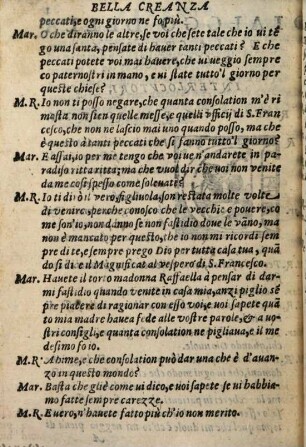 BELLA CREANZA
peccati, e ogni giorno ne fo piu.
Mar. O che diranno le altre, se voi che sete tale che io vi tẽ
go una santa, pensate di haver tanti peccati? E che
peccati potete voi mai havere, che vi veggio sempre
co paternostri in mano, e vi state tutto'l giorno per
queste chiese?
M. R. Io non ti posso negare, che quanta consolation m'è ri
masta non sien quelle messe, e quelli ufficij di S. Fran
cesco, che non ne lascio mai uno quando posso, ma che
è questo à tanti peccati che si fanno tutto'l giorno?
Mar. E assai, io per me tengo che voi ve n'andarete in pa-
radiso ritta ritta; ma che vuol dir che voi non venite
da me cosi spesso come solevate?
M. R. Io ti dirò il vero, figliuola, son restata molte volte
di venire, perche conosco che le vecchie e povere, co
me son'io, non danno se non fastidio dove le vãno, ma
non è mancato per questo, che io non mi ricordi sem
pre di te, e sempre prego Dio per tutta casa tua, quã
do si di e il Magnificat al vespero di S. Francesco.
Mar. Havete il torto madonna Raffaella à pensar di dar-
mi fastidio quando venite in casa mia, anzi piglio sẽ
pre piacere di ragionar con esso voi, e voi sapete quã
to mia madre haveva fede alle vostre parole, & a vo
stri consigli, e quanta consolation ne pigliava, e il me
desimo fo io.
M. R. Ahime, e che consolation può dar una che è d'avan-
zo in questo mondo?
Mar. Basta che gliè come vi dico, e voi sapete se vi habbia-
mo fatte sempre carezze.
M. R. E vero, n'havete fatto più ch'io non merito.